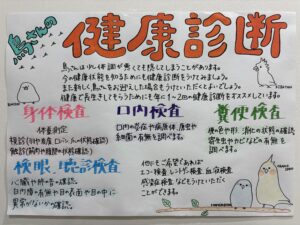 鳥さんの
健康診断
鳥さんは少し体調が悪くても隠してしまうことがあります。
今の健康状態を知るためにも健康診断をうけてみましょう。
また新しく鳥さんをお迎えした場合もうけていただくとよいでしょう。
健康で長生きしてもらうためにも年に1〜2回の健康診断をオススメしています。
身体検査
体重測定
視診
触診
口内検査
口内の炎症や病原体、食歴や
細菌の有無を調べます。
糞便検査
便の色や形、消化の状態の確認
寄生虫やカビなどの有無を
調べます。
検眼、聴診検査
心臓や肺の音の確認。
白内障の有無や目の表面や目の中に
異常がないかの確認
他にもご希望であれば
エコー・レントゲン検査、血液検査
感染症検査などもうけていただく
ことができます。